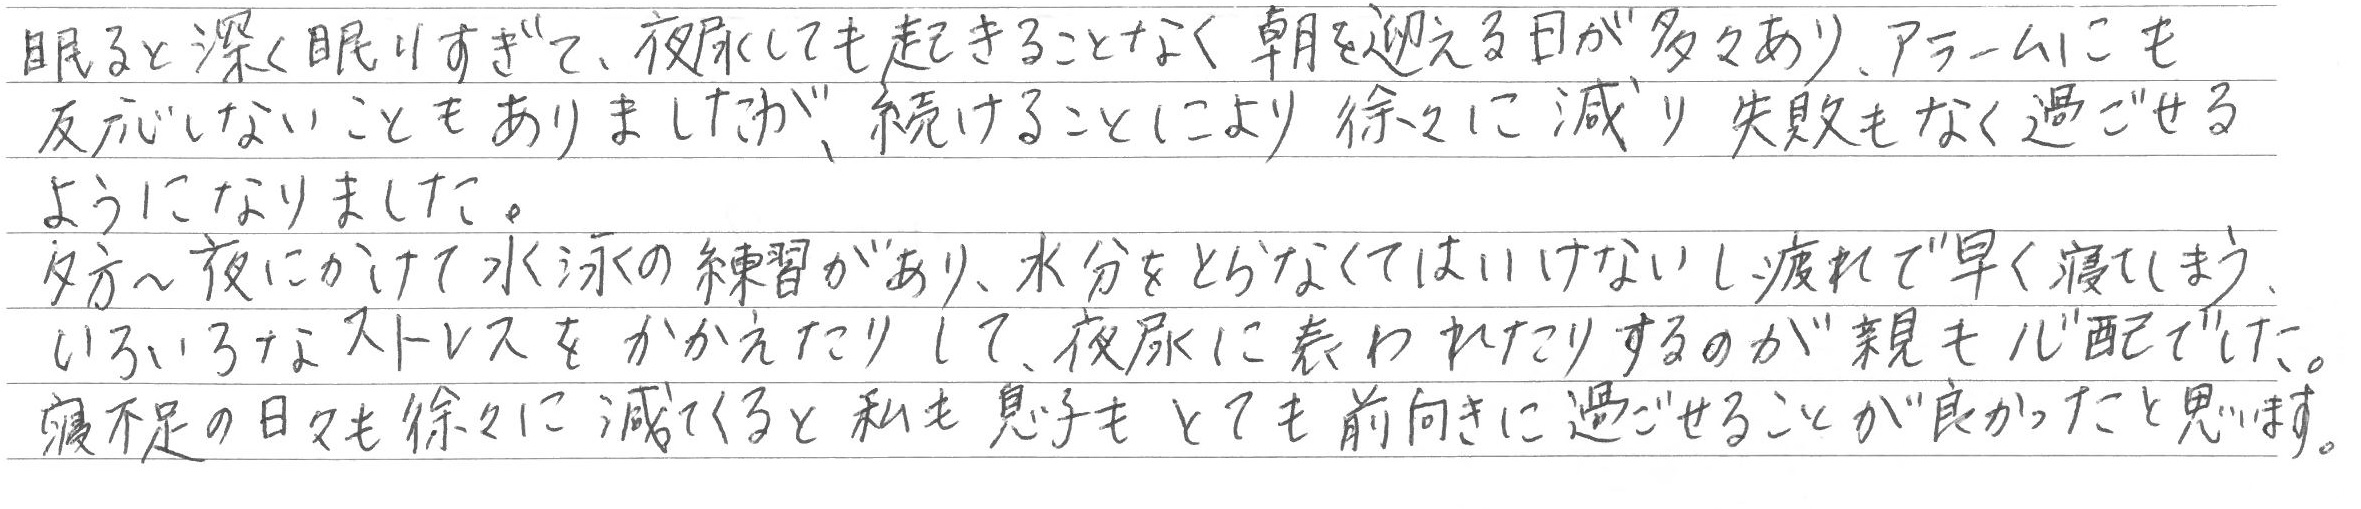 眠ると深く眠りすぎて、夜尿しても起きることなく朝を迎える日が多々あり、アラームにも
反応しないこともありましたが、続けることにより徐々に減り失敗もなく過ごせる
ようになりました。
夕方～夜にかけて水泳の練習があり、水分をとらなくてはいけないし疲れで早く寝てしまう、
いろいろなストレスをかかえたりして、夜尿に表われたりするのが親も心配でした。
寝不足の日々も徐々に減てくると私も息子もとても前向きに過ごせることが良かったと思います。